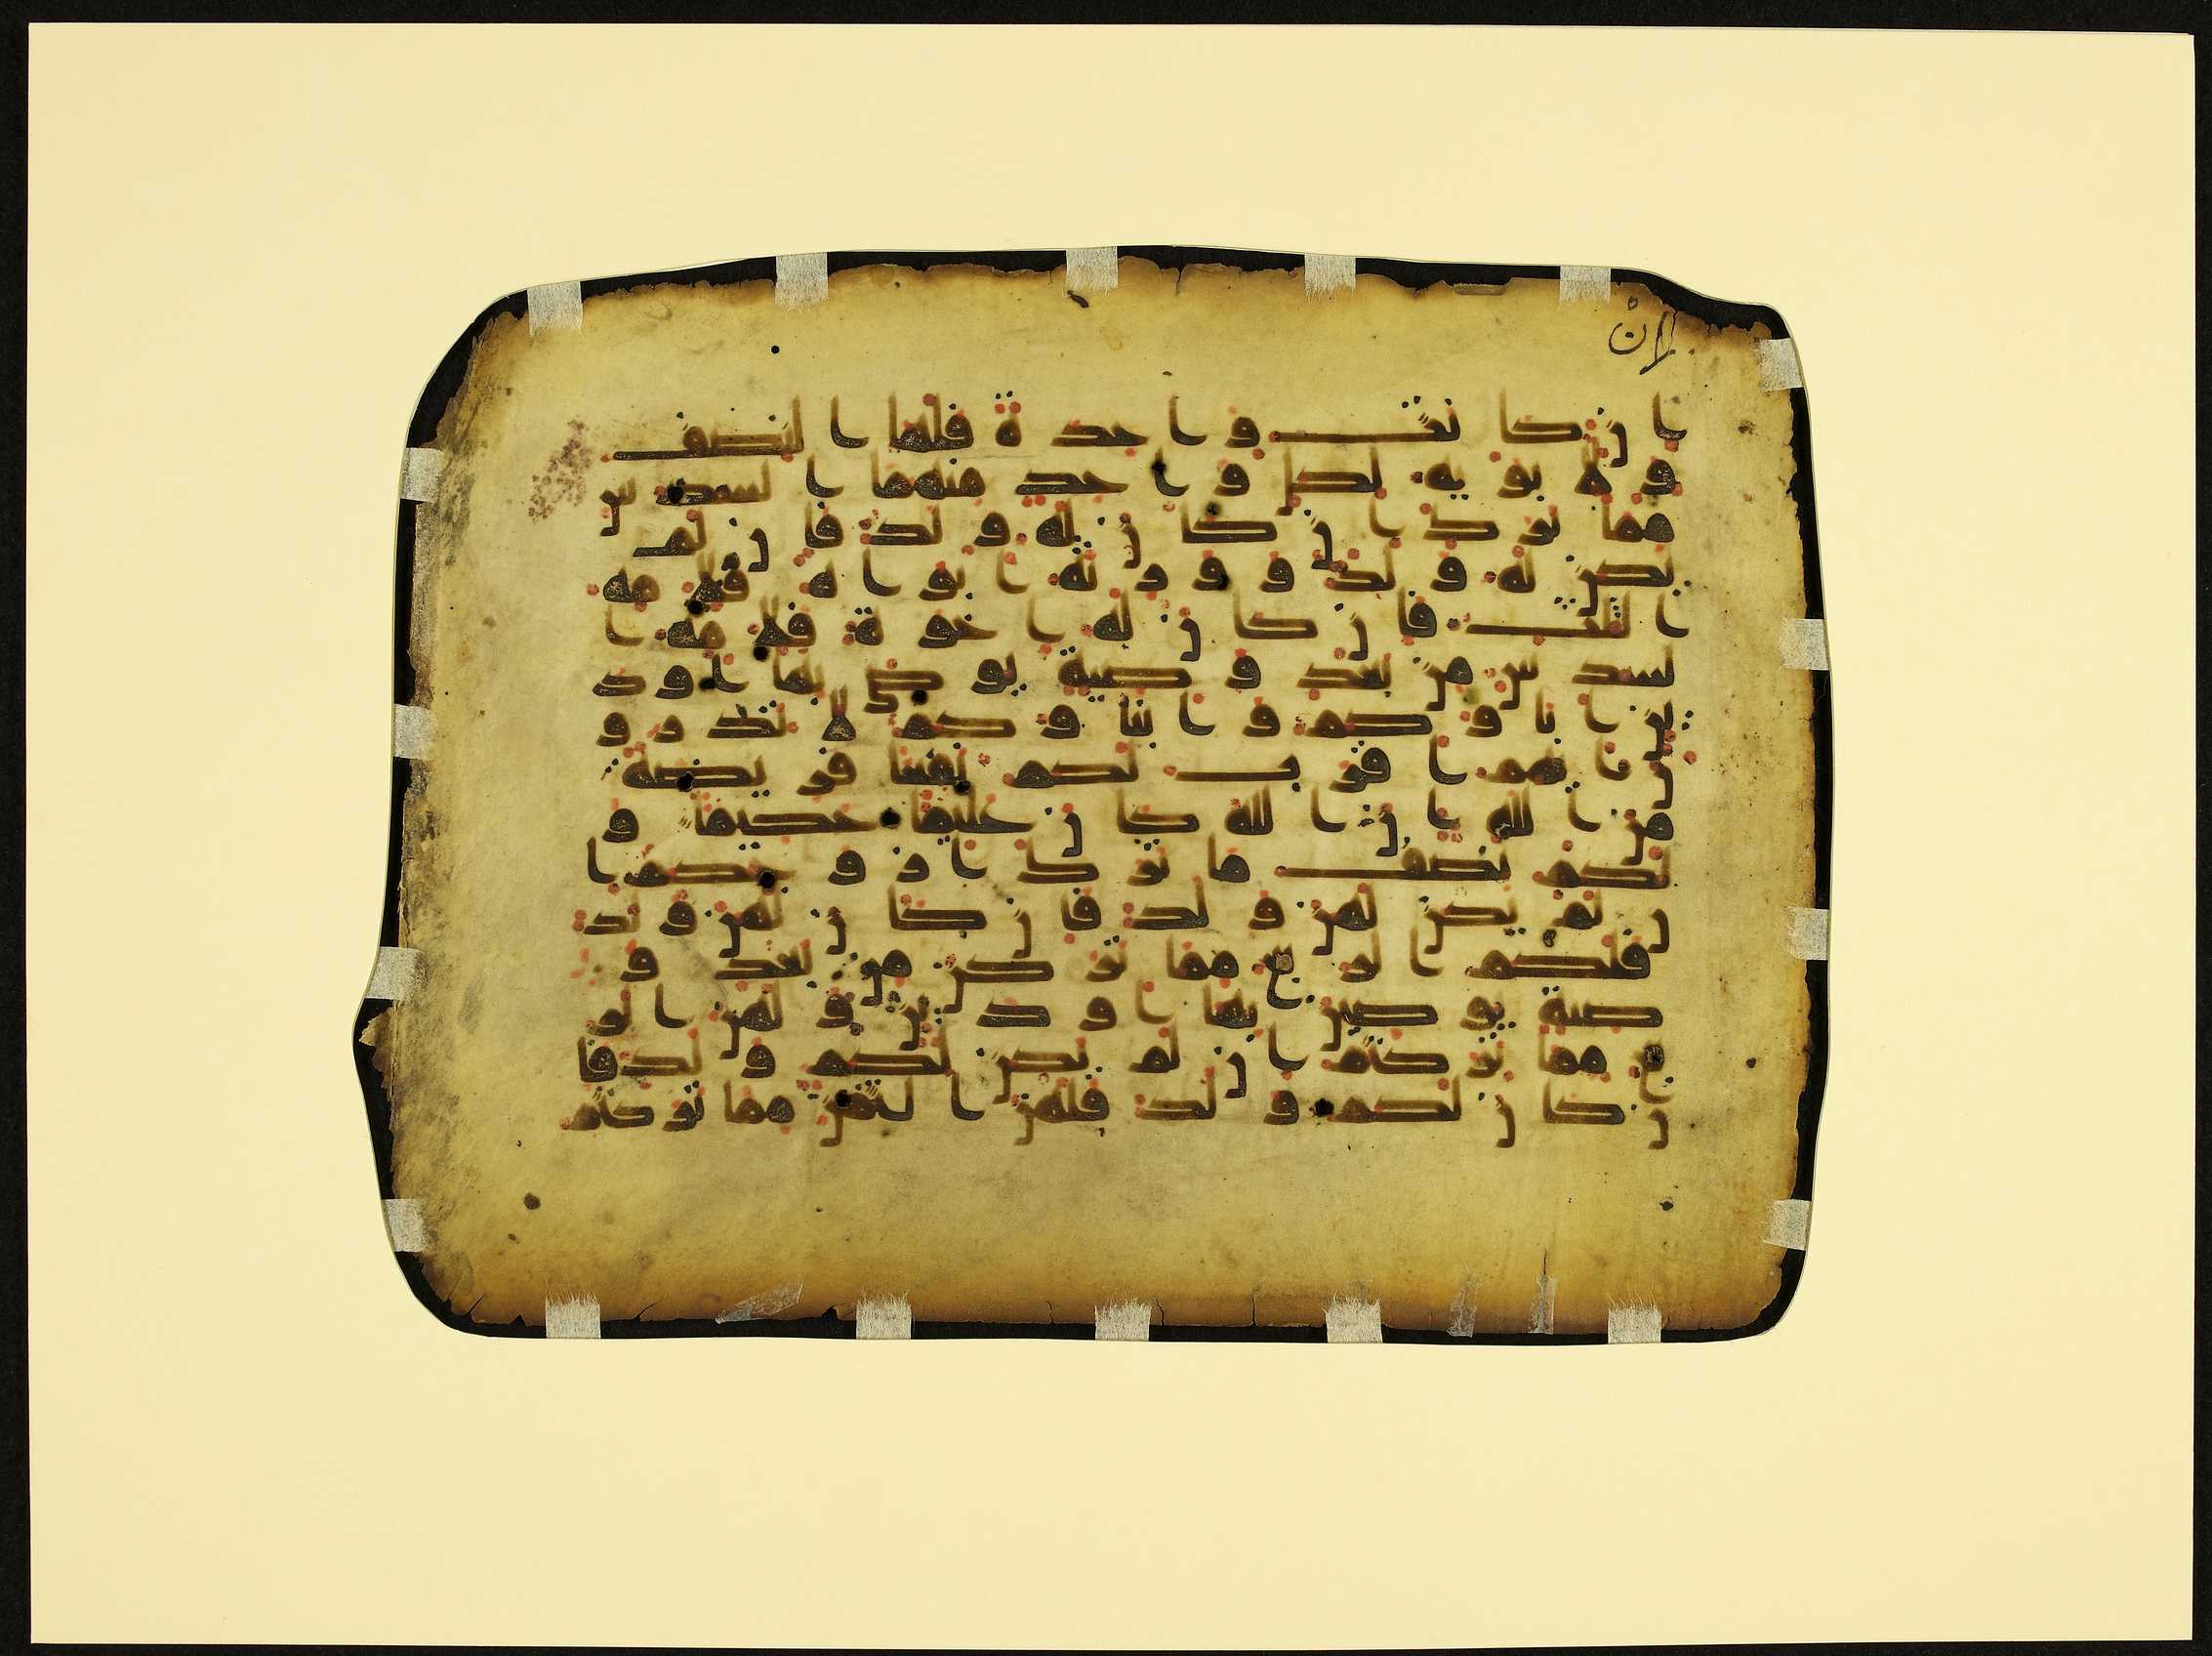 ان كانت واحدة فلها النصف
ولابويه لكل واحد منهما السدس
مما ترك ان كان له ولد فان لم
يكن له ولد وورثه ابواه فلامه
الثلث فان كان له اخوة فلامه ا
لسدس من بعد وصية يوصي بها او د
ين اباوكم وابناوكم لا تدرو
ن ايهم اقرب لكم نفعا فريضة
من الله ان الله كان عليما حكيما و
لكم نصف ما ترك ازوجكم ا
ن لم يكن لهن ولد فان كان لهن ولد
فلكم الربع مما تركن من بعد و
صية يوصين بها او دين ولهن الر
بع مما تركتم ان لم يكن لكم ولد فا
ن كان لكم ولد فلهن الثمن مما تركتم